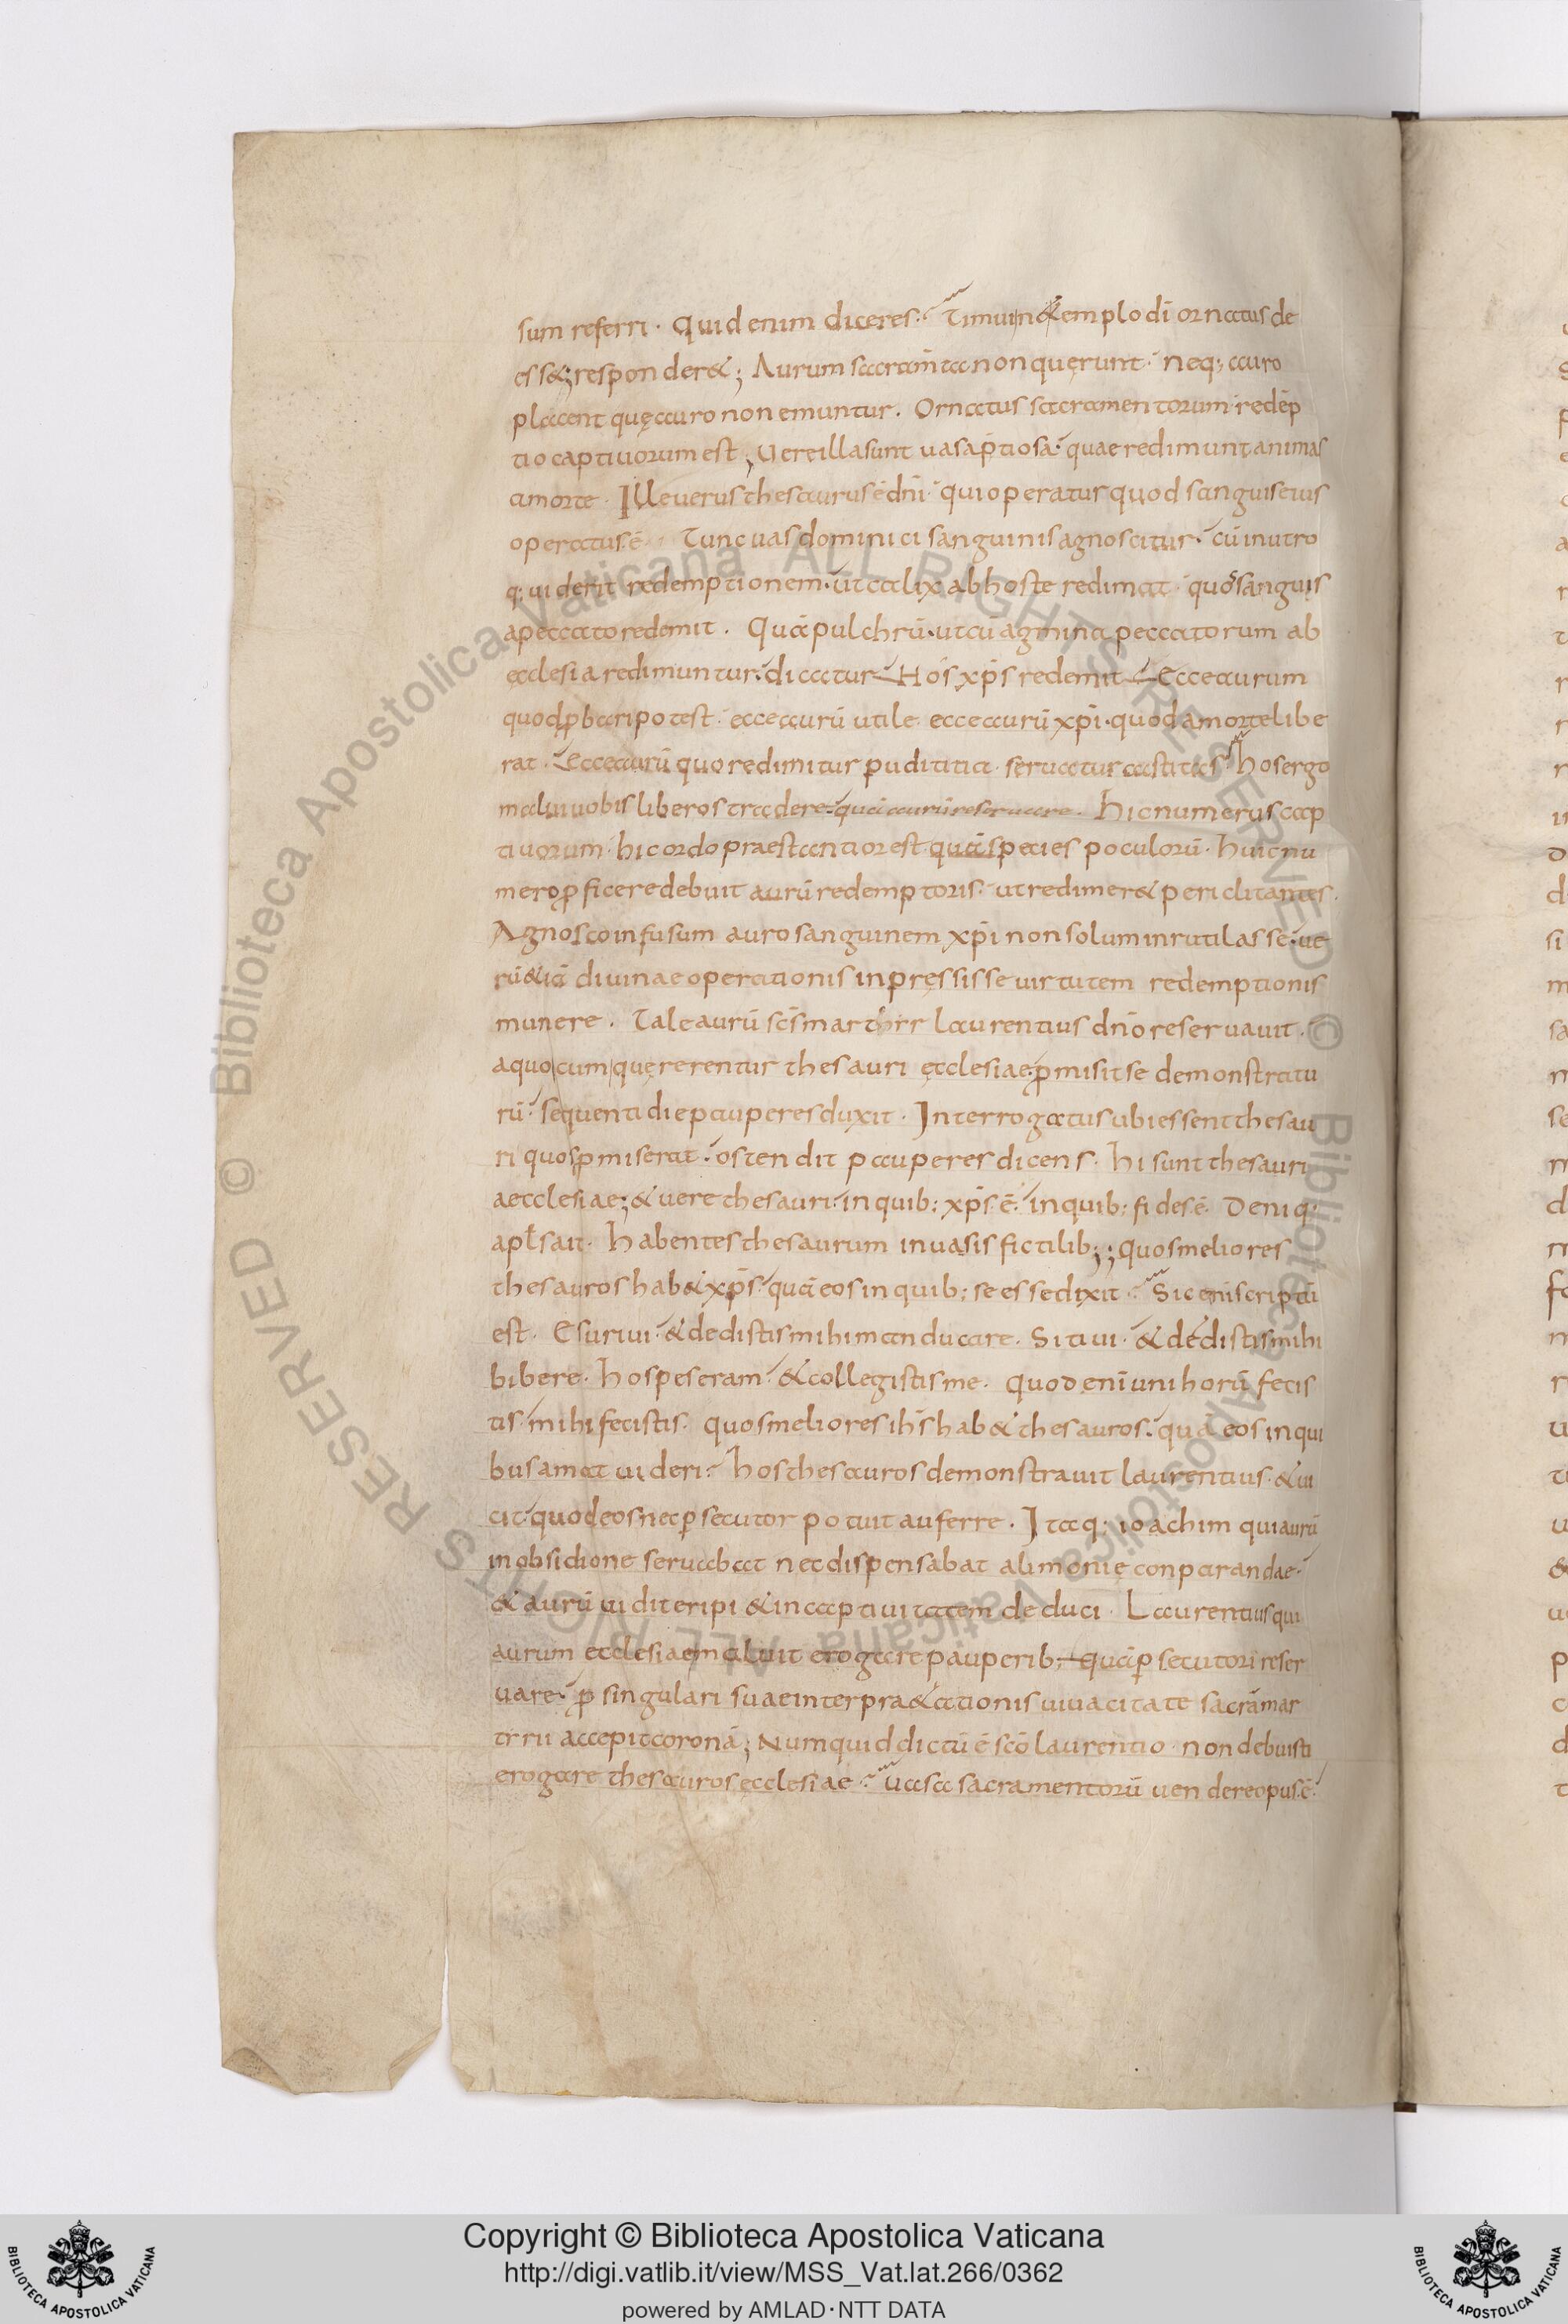 sum referri. Quid enim diceres. Timui n& emplo di ornatus de
ess& respander&; Aurum sacramta non quęrunt. neq; auro
placent quę auro non emuntur. Ornatus sacramentorum redēp
tio captiuorum est; Uere illa sunt uasa p̄tiosa. quae redimunt animas
a morte. Ille uerus thesaurus ē dn̄i. qui operatur quod sanguis eius
operatus ē. Tunc uas dominici sanguinis agnoscitur. cū in utro
q; uiderit redemptionem. ut calix ab hoste redimat. quos sanguis
a peccato redemit. Quā pulchrū. ut cū agmina peccatorum ab
ecclesia redimuntur. dicatur. Hos xp̄s redemit. Ecce aurum
quod p̱bari potest. ecce aurū utile. ecce aurū xp̄i. quod a morte libe
rat. Ecce aurū quo redimitur puditia seruatur castitas. hos ergo
malui uobis liberos tradere. quā aurū reseruare. hic numerus cap
tiuorum. hic ordo praestantior est quā species poculorū. huic nu
mero p̱ficere debuit aurū redemptoris. ut redimer& periclitantes.
Agnosco infusum auro sanguinem xp̄i non solum inrutilasse. ue
rū &iā diuinae operationis inpręssisse uirtutem redemptionis
munere. Tale aurū sc̄s martyr laurentius dn̄o reseruauit.
a quo cum quęrerentur thesauri ęcclesiae. p̱misit se demonstratu
rū. sequenti die pauperes duxit. Interrogatus ubi essent thesau
ri quos p̱miserat. ostendit pauperes dicens. hi sunt thesauri
aecclesiae; & uere thesauri. in quib; xp̄s ē. in quib; fides ē. Deniq;
apłs ait. habentes thesaurum in uasis fictilib;; Quos meliores
thesauros hab& xp̄s. quā eos in quib; se esse dixit. Sic eni scriptū
est. Esuriui. & dedistis mihi manducare. Sitiui. & dedistis mihi
bibere. hospes eram. & collegistis me. Quod enī uni horū fecis
tis. mihi fecistis. quos meliores ih̄s hab& thesauros. quā eos in qui
bus amat uideri. hos thesauros demonstrauit laurentius. & ui
cit. quod eos nec p̱secutor potuit auferre. Itaq; ioachim qui aurū
in obsidione seruabat nec dispensabat alimonię conparandae.
& aurū uidit eripi & in captiuitatem deduci. Laurentius qui
aurum ecclesiae maluit erogare pauperib; quā p̱secutori reser
uare. p̱ singulari suae interpra&ationis uiuacitate sacrā mar
trrii accepit coronā; Numquid dictū ē sc̄o laurentio. non debuisti
erogare thesauros ęcclesiae. uasa sacramentorū uendere opus ē.
Copyright © Biblioteca Apostolica Vaticana
http://digi.vatlib.it/view/MSS_Vat.lat.266/0362
powered by AMLAD·NTT DATA